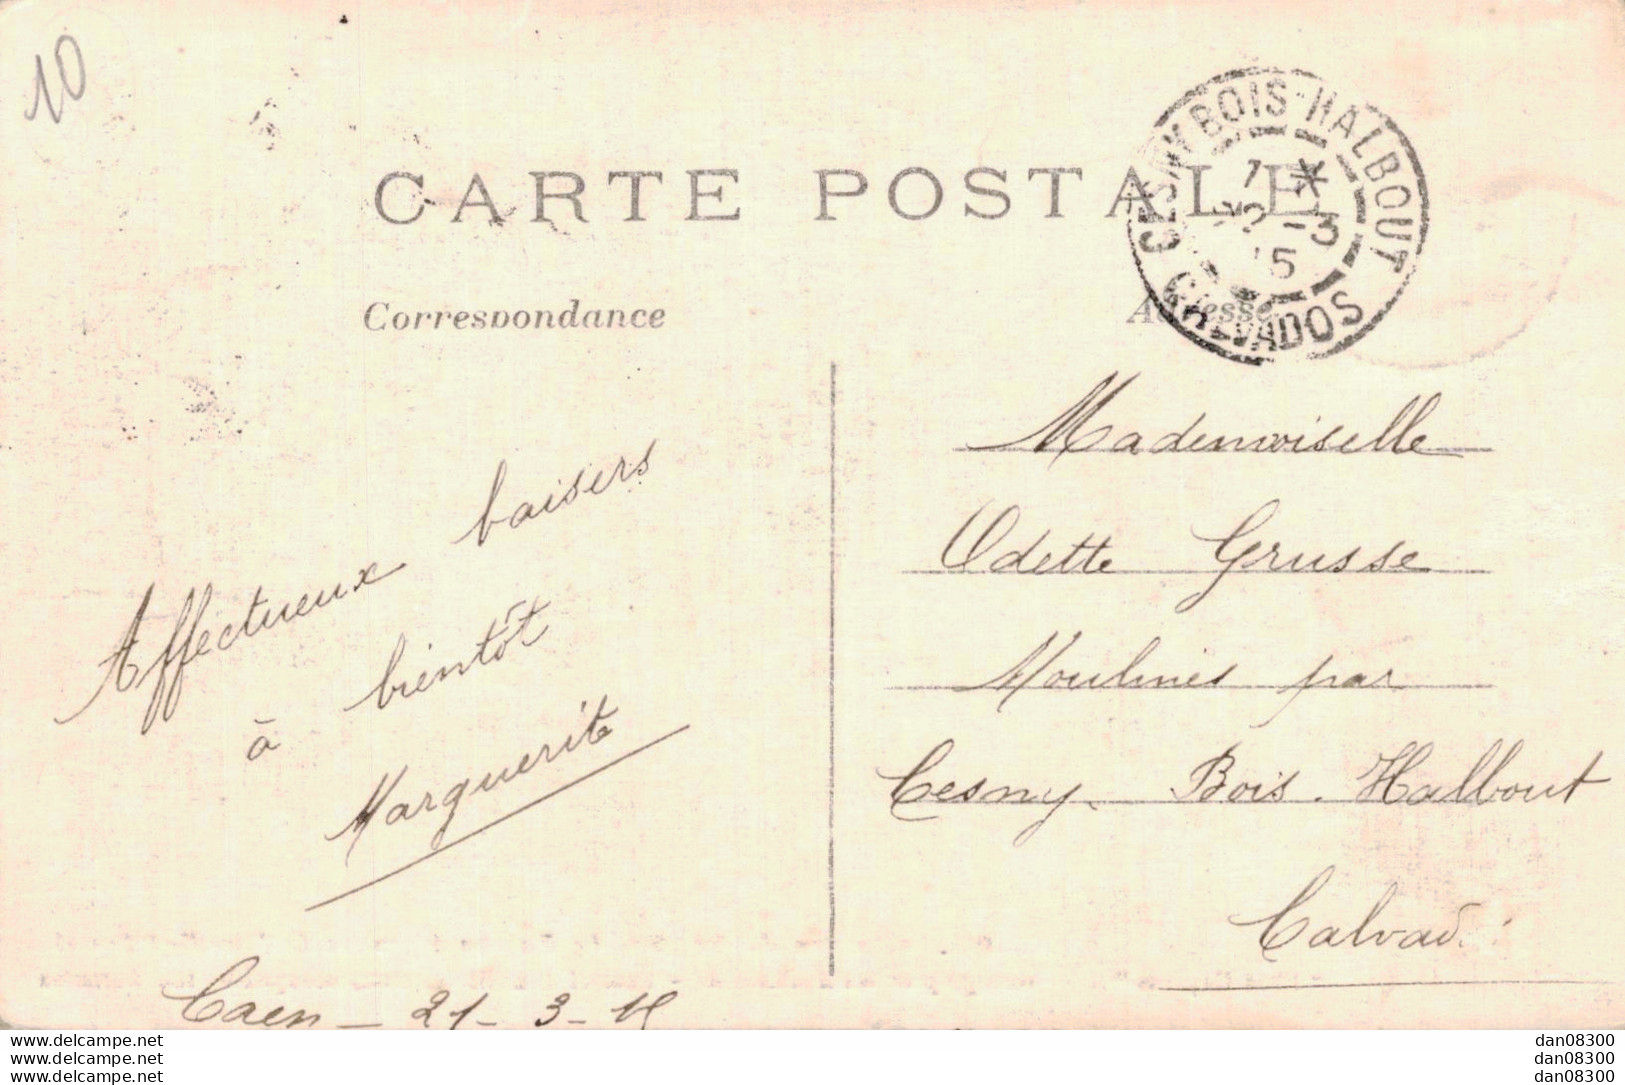 10
CARTE POSTALE
CESNY BOIS-HALBOUT
7 *
22 -3
15
CALVADOS
Correspondance
Adresse
Affectueux baisers
à bientôt
Marguerite
Caen - 21-3-15
Mademoiselle
Odette Grusse
Moulines par
Cesny. Bois. Halbout
Calvad.
www.delcampe.net
www.delcampe.net
www.delcampe.net
dan08300
dan08300
dan08300